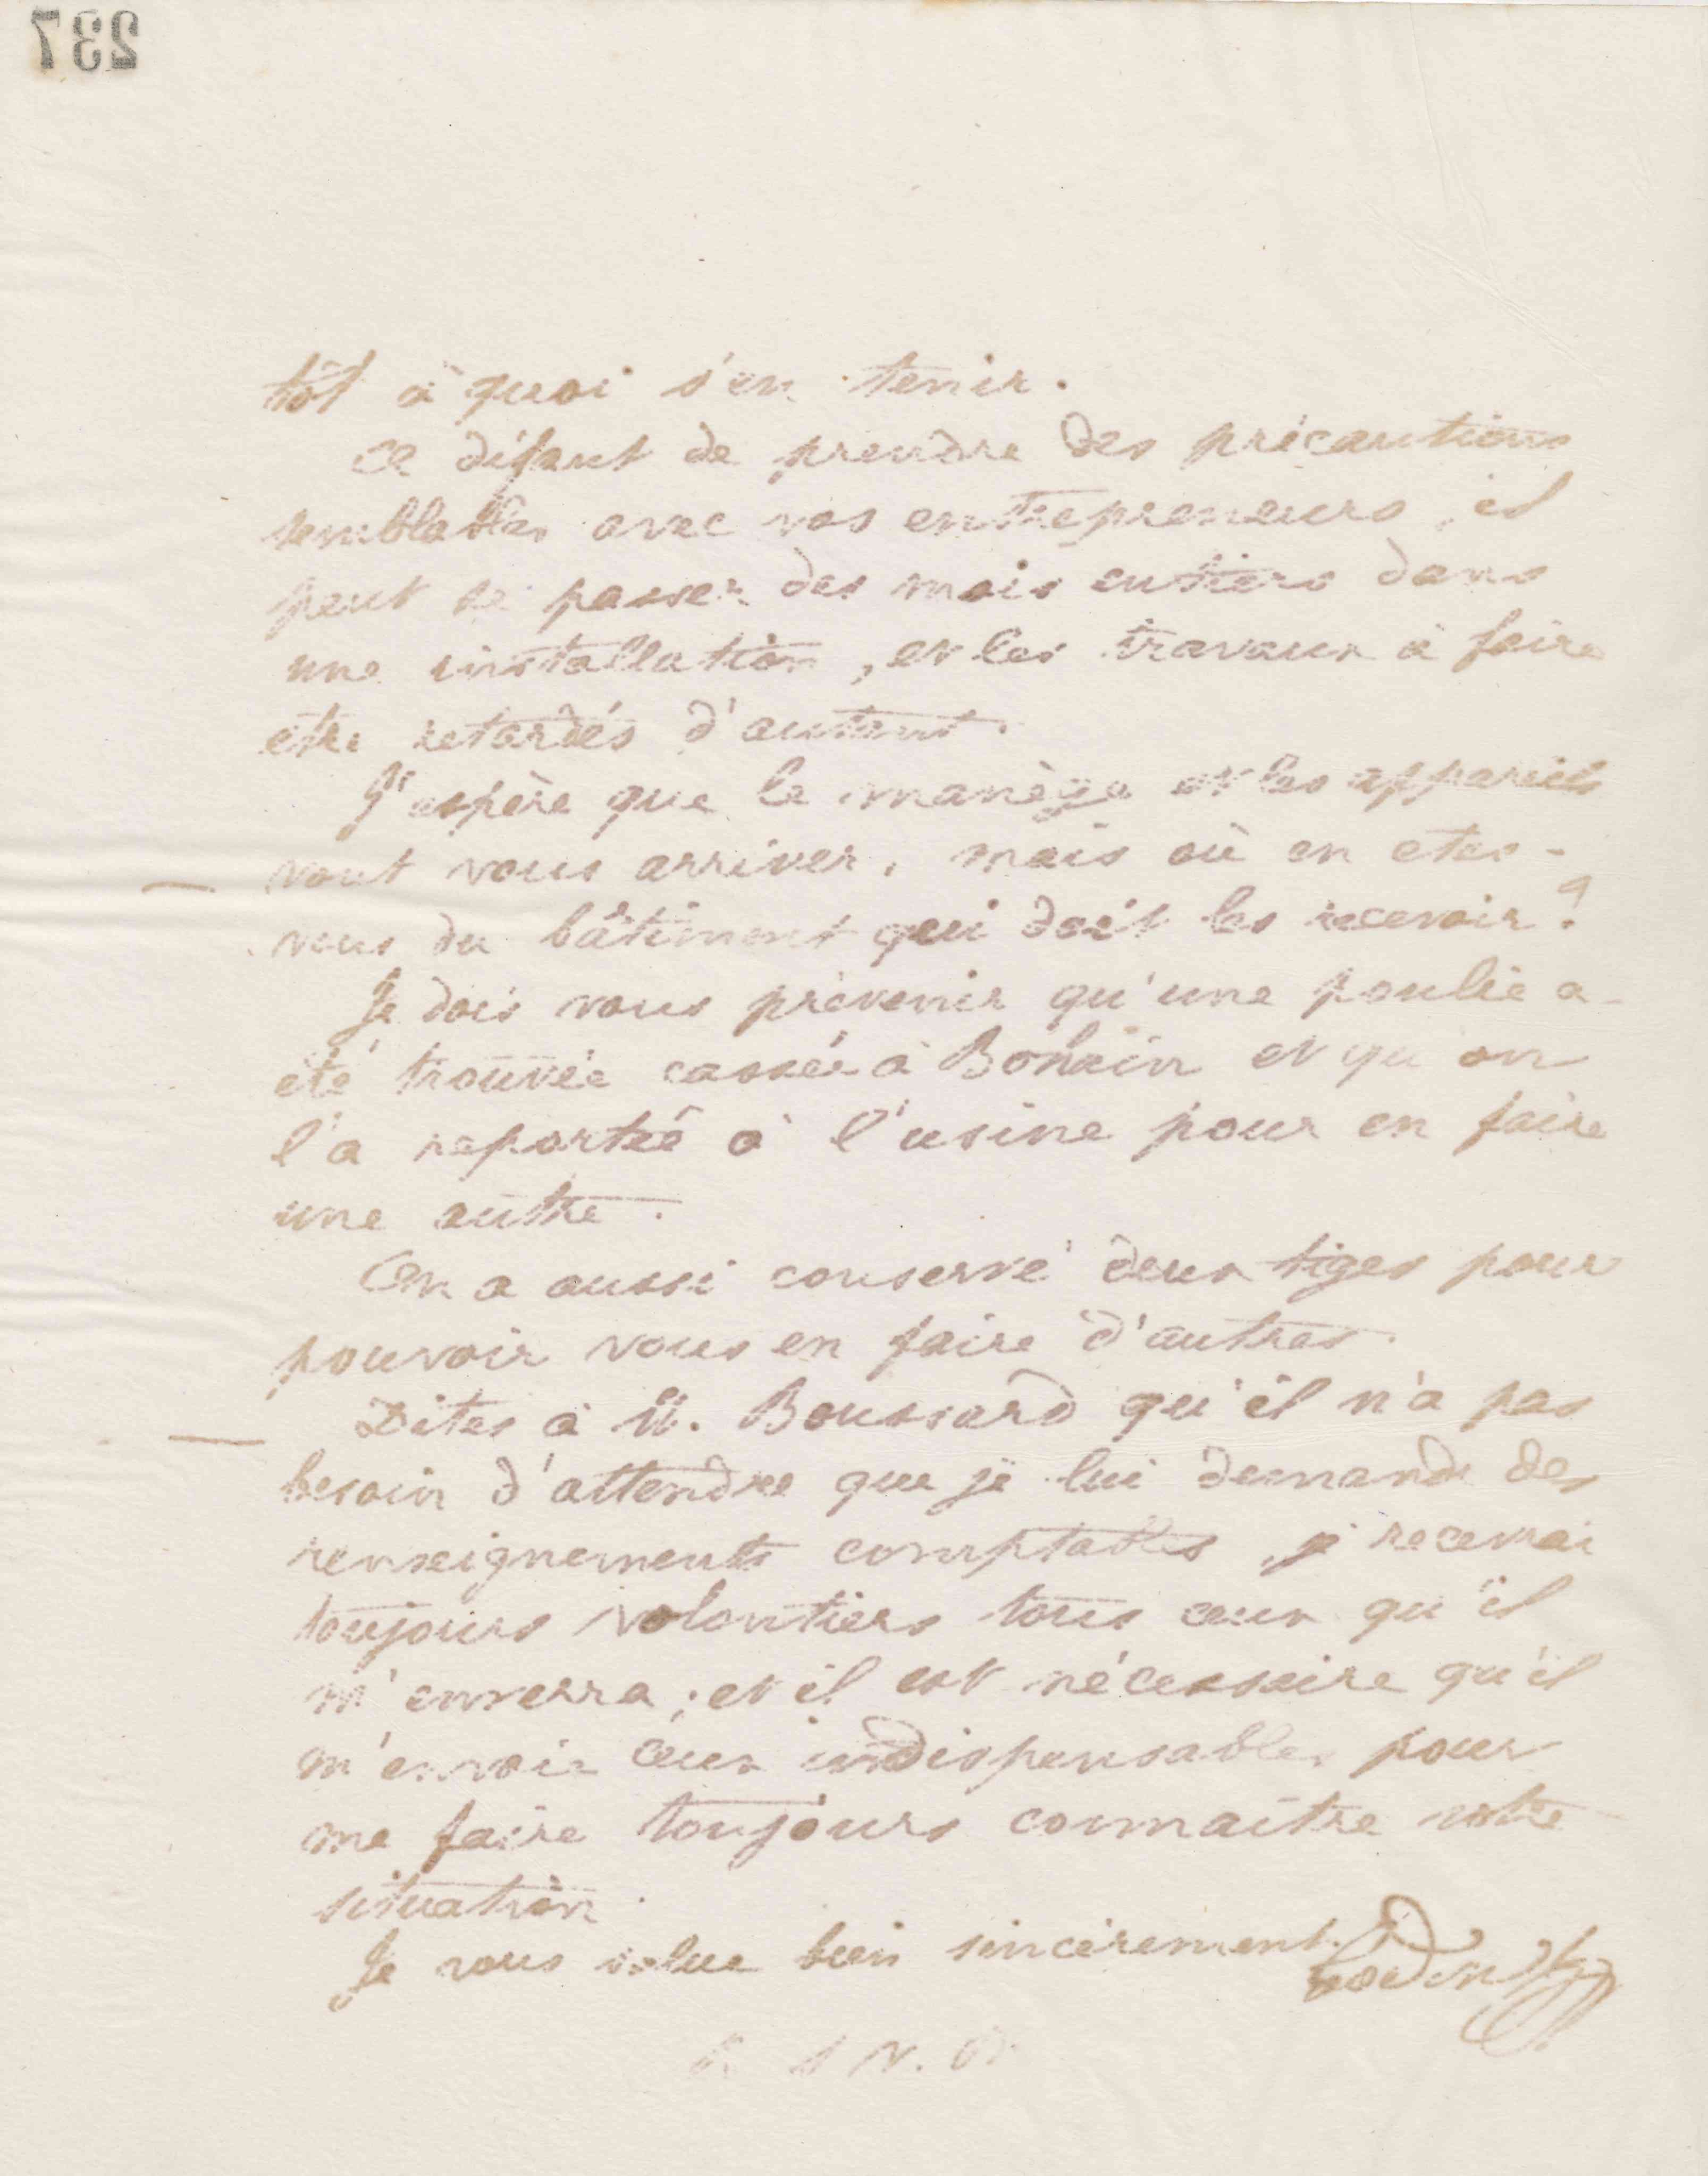 237
tôt à quoi s'en tenir.
A défaut de prendre des précautions
semblables avec vos entrepreneurs, il
peut se passer des mois entiers dans
une installation, et les travaux à faire
être retardés d'autant.
J'espère que le manège et les appareils
vont vous arriver, mais où en etes-
vous du bâtiment qui doit les recevoir ?
Je dois vous prévenir qu'une poulie a
été trouvée cassée à Bohain et qu'on
l'a reportée à l'usine pour en faire
une autre.
On a aussi conservé deux tiges pour
pouvoir vous en faire d'autres.
Dites à M. Boussard qu'il n'a pas
besoin d'attendre que je lui demande des
renseignements comptables, je recevrai
toujours volontiers tous ceux qu'il
m'enverra ; et il est nécessaire qu'il
m'envoie ceux indispensables pour
me faire toujours connaître votre
situation.
Je vous salue bien sincèrement.
Godin